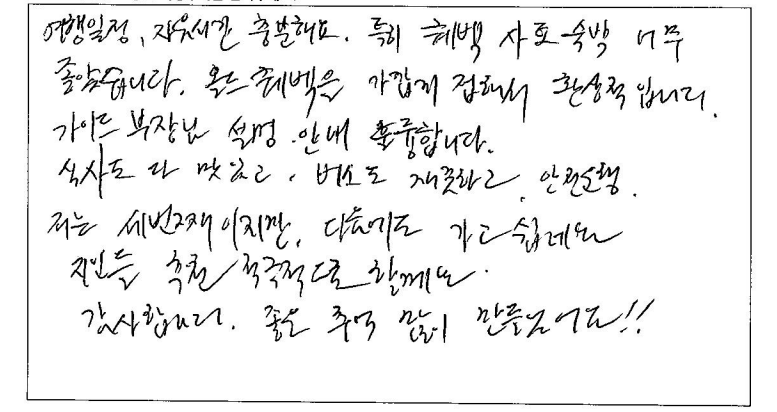 여행일정, 자유시간 충분해요. 특히 퀘백 샤또 숙박 너무
좋았습니다. 올드 퀘백을 가깝게 접해서 환상적입니다.
가이드 부장님 설명·안내 훌륭합니다.
식사도 다 맛있고, 버스도 깨끗하고, 안전운행.
저는 세번째이지만, 다음에도 가고 싶네요
지인들 추천 적극적으로 할께요.
감사합니다. 좋은 추억 많이 만들었어요!!